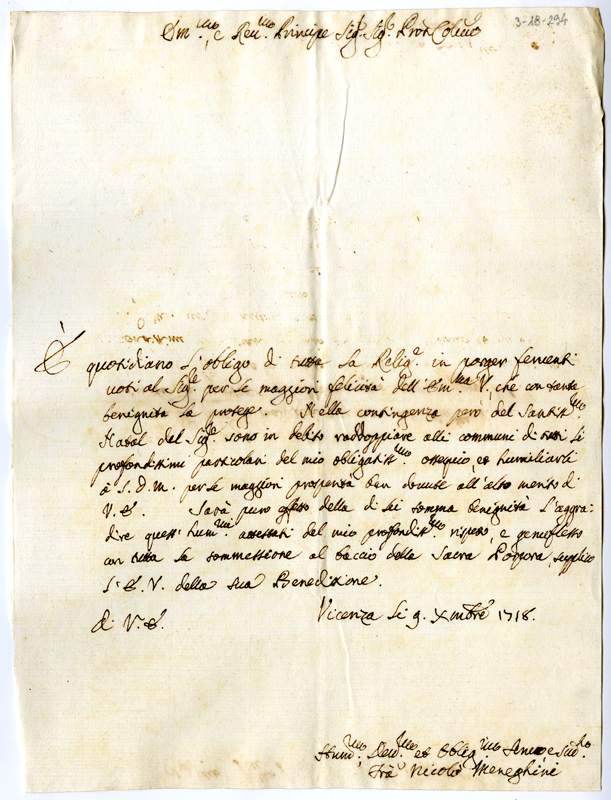 3-18-294
Em.mo, e Reu.mo Principe Sig. Sig. Pron Col.mo
È quotidiano l'obligo di tutta la Relig.e in porger feruenti
uoti al Sig.re per le maggiori felicità dell'Em.za V. che con tanta
benignità la protege. Nella contingenza però del Santis.mo
Natal del Sig.re sono in debito raddoppiare alli communi di tutti li
profondissimi particolari del mio obligatiss.mo ossequio, et humiliarli
à S. D. M. per le maggiori prosperità ben douute all'alto merito di
V. E. Sarà puro effetto della di lei somma benignità l'aggra=
dire questi hum.mi attestati del mio profondiss.mo rispetto, e genuflesso
con tutta la sommessione al baccio della Sacra Porpora supplico
l'E. V. della sua Benedizione.
di V. E. Vicenza li 9. Xmbre 1718.
Hum.mo, Deu.mo et Oblig.mo Seruo, e Sud.to
Frà Nicolò Meneghini